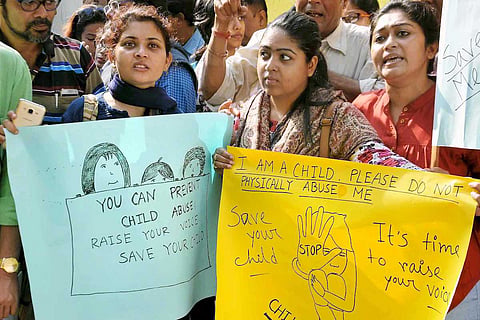 YOU CAN PREVENT
CHILD ABUSE
RAISE YOUR VOICE
SAVE YOUR CHILD
I AM A CHILD, PLEASE DO NOT
PHYSICALLY ABUSE ME
Save
your
child
STOP
It's time
to raise
your voice
CHIL
Save
Me